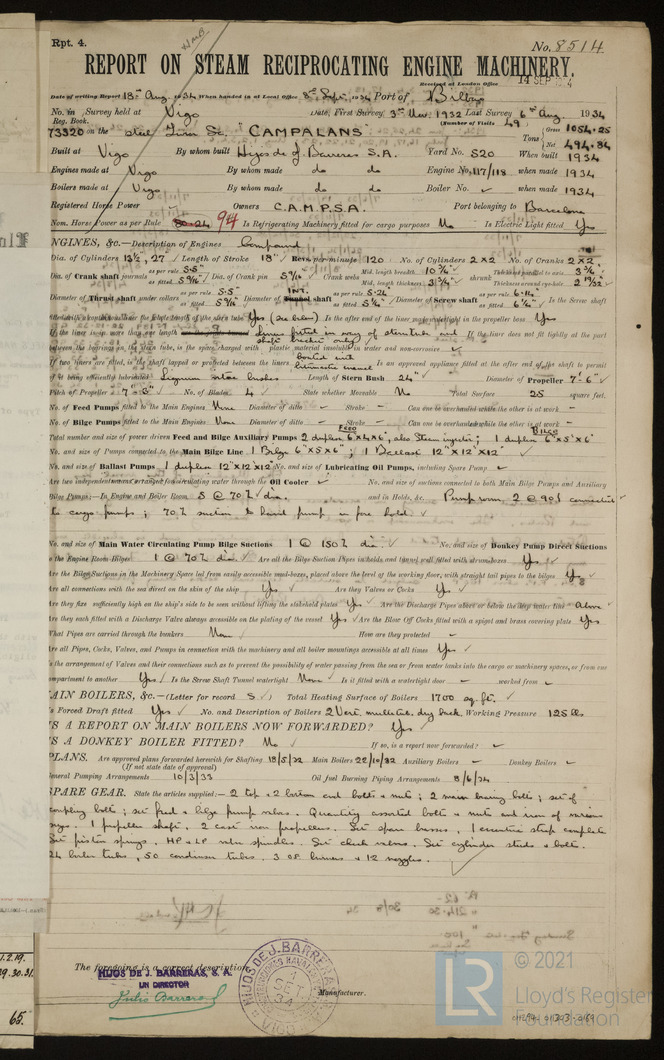 Rpt. 4.
No. 8514
REPORT ON STEAM RECIPROCATING ENGINE MACHINERY.
Received at London Office 14 SEP 1934
Date of writing Report 18th Aug. 1934 When handed in at Local Office 8th Sept. 1934 Port of Bilbao
No. in Survey held at Vigo Date, First Survey 3rd Nov. 1932 Last Survey 6th Aug. 1934
Reg. Book. (Number of Visits 49)
73320 on the steel Twin Sc. "CAMPALANS" Tons Gross 1054.25 Net 494.84
Built at Vigo By whom built Hijos de J. Barreras S.A. Yard No. 520 When built 1934
Engines made at Vigo By whom made do do Engine No. 117/118 when made 1934
Boilers made at Vigo By whom made do do Boiler No. when made 1934
Registered Horse Power Owners C.A.M.P.S.A. Port belonging to Barcelona
Nom. Horse Power as per Rule 94 Is Refrigerating Machinery fitted for cargo purposes No Is Electric Light fitted Yes
NGINES, &c.—Description of Engines Compound
Dia. of Cylinders 13½", 27 Length of Stroke 18" Revs. per minute 120 No. of Cylinders 2 x 2 No. of Cranks 2 x 2
Dia. of Crank shaft journals as per rule 5.5 as fitted Dia. of Crank pin Crank webs Mid. length breadth 10 ⅝" Mid. length thickness shrunk Thickness parallel to axis Thickness around eye-hole
Diameter of Thrust shaft under collars as per rule 5.5" as fitted Diameter of INT. shaft as per rule 5.24" as fitted Diameter of Screw shaft as per rule as fitted Is the Screw shaft
Yes (see below) Is the after end of the liner made watertight in the propeller boss Yes
liners fitted in way of sterntube and If the liner does not fit tightly at the part
shaft bracket only
between the bearings in the stern tube, is the space charged with a plastic material insoluble in water and non-corrosive
If two liners are fitted, is the shaft lapped or protected between the liners coated with bituminastic enamel Is an approved appliance fitted at the after end of the shaft to permit
of it being efficiently lubricated Lignum vitae bushes Length of Stern Bush 24" Diameter of Propeller 7'-6"
Pitch of Propeller No. of Blades 4 State whether Moveable No Total Surface 25 square feet.
No. of Feed Pumps fitted to the Main Engines None Diameter of ditto Stroke Can one be overhauled while the other is at work -
No. of Bilge Pumps fitted to the Main Engines None Diameter of ditto - Stroke - Can one be overhauled while the other is at work -
Total number and size of power driven Feed and Bilge Auxiliary Pumps FEED 2 duplex 6x4x6", also Steam injector; BILGE 1 duplex 6"x5"x6"
No. and size of Pumps connected to the Main Bilge Line 1 Bilge 6"x5"x6"; 1 Ballast 12"x12"x12"
No. and size of Ballast Pumps 1 duplex 12"x12"x12" No. and size of Lubricating Oil Pumps, including Spare Pump
Are two independent means arranged for circulating water through the Oil Cooler No. and size of suctions connected to both Main Bilge Pumps and Auxiliary
Bilge Pumps;—In Engine and Boiler Room 5 @ 70 % dia. and in Holds, &c. Pump room, 2 @ 90 % connected
to cargo pumps; 70 % suction to hand pump in fore hold.
No. and size of Main Water Circulating Pump Bilge Suctions 1 @ 150 % dia No. and size of Donkey Pump Direct Suctions
to the Engine Room Bilges 1 @ 70 % dia Are all the Bilge Suction Pipes in holds and tunnel well fitted with strum-boxes Yes
Are the Bilge Suctions in the Machinery Space led from easily accessible mud-boxes, placed above the level of the working floor, with straight tail pipes to the bilges Yes
Are all connections with the sea direct on the skin of the ship Yes Are they Valves or Cocks Yes
Are they fixed sufficiently high on the ship's side to be seen without lifting the stokehold plates Yes Are the Discharge Pipes above or below the deep water line Above
Are they each fitted with a Discharge Valve always accessible on the plating of the vessel Yes Are the Blow Off Cocks fitted with a spigot and brass covering plate Yes
What Pipes are carried through the bunkers None How are they protected -
Are all Pipes, Cocks, Valves, and Pumps in connection with the machinery and all boiler mountings accessible at all times Yes
Is the arrangement of Valves and their connections such as to prevent the possibility of water passing from the sea or from water tanks into the cargo or machinery spaces, or from one
compartment to another Yes Is the Screw Shaft Tunnel watertight None Is it fitted with a watertight door - worked from -
AIN BOILERS, &c.—(Letter for record S) Total Heating Surface of Boilers 1700 sq. ft.
Is Forced Draft fitted Yes No. and Description of Boilers 2 Vert. multitub. dry back Working Pressure 125 lbs
IS A REPORT ON MAIN BOILERS NOW FORWARDED? Yes
IS A DONKEY BOILER FITTED? No If so, is a report now forwarded? -
PLANS. Are approved plans forwarded herewith for Shafting 18/5/32 Main Boilers 22/10/32 Auxiliary Boilers - Donkey Boilers -
(If not state date of approval)
General Pumping Arrangements 10/3/33 Oil fuel Burning Piping Arrangements 8/6/34
SPARE GEAR. State the articles supplied:— 2 top & 2 bottom end bolts & nuts; 2 main bearing bolts; set of
coupling bolts; set feed & bilge pump valves. Quantity assorted bolts & nuts and iron of various
sizes. 1 propeller shaft, 2 cast iron propellers. Set spare brasses, 1 eccentric strap complete
Set piston springs. HP & LP valve spindles. Set check valves. Set cylinder studs & bolts.
24 boiler tubes, 50 condenser tubes. 3 OF burners & 12 nozzles.
The foregoing is a correct description,
HIJOS DE J. BARRERAS, S. A.
UN DIRECTOR
Julio Barreras
Manufacturer.
HIJOS DE J. BARRERA
VIGO
1.2.19.
29.30.31.
65.
LR
© 2021
Lloyd's Register
Foundation